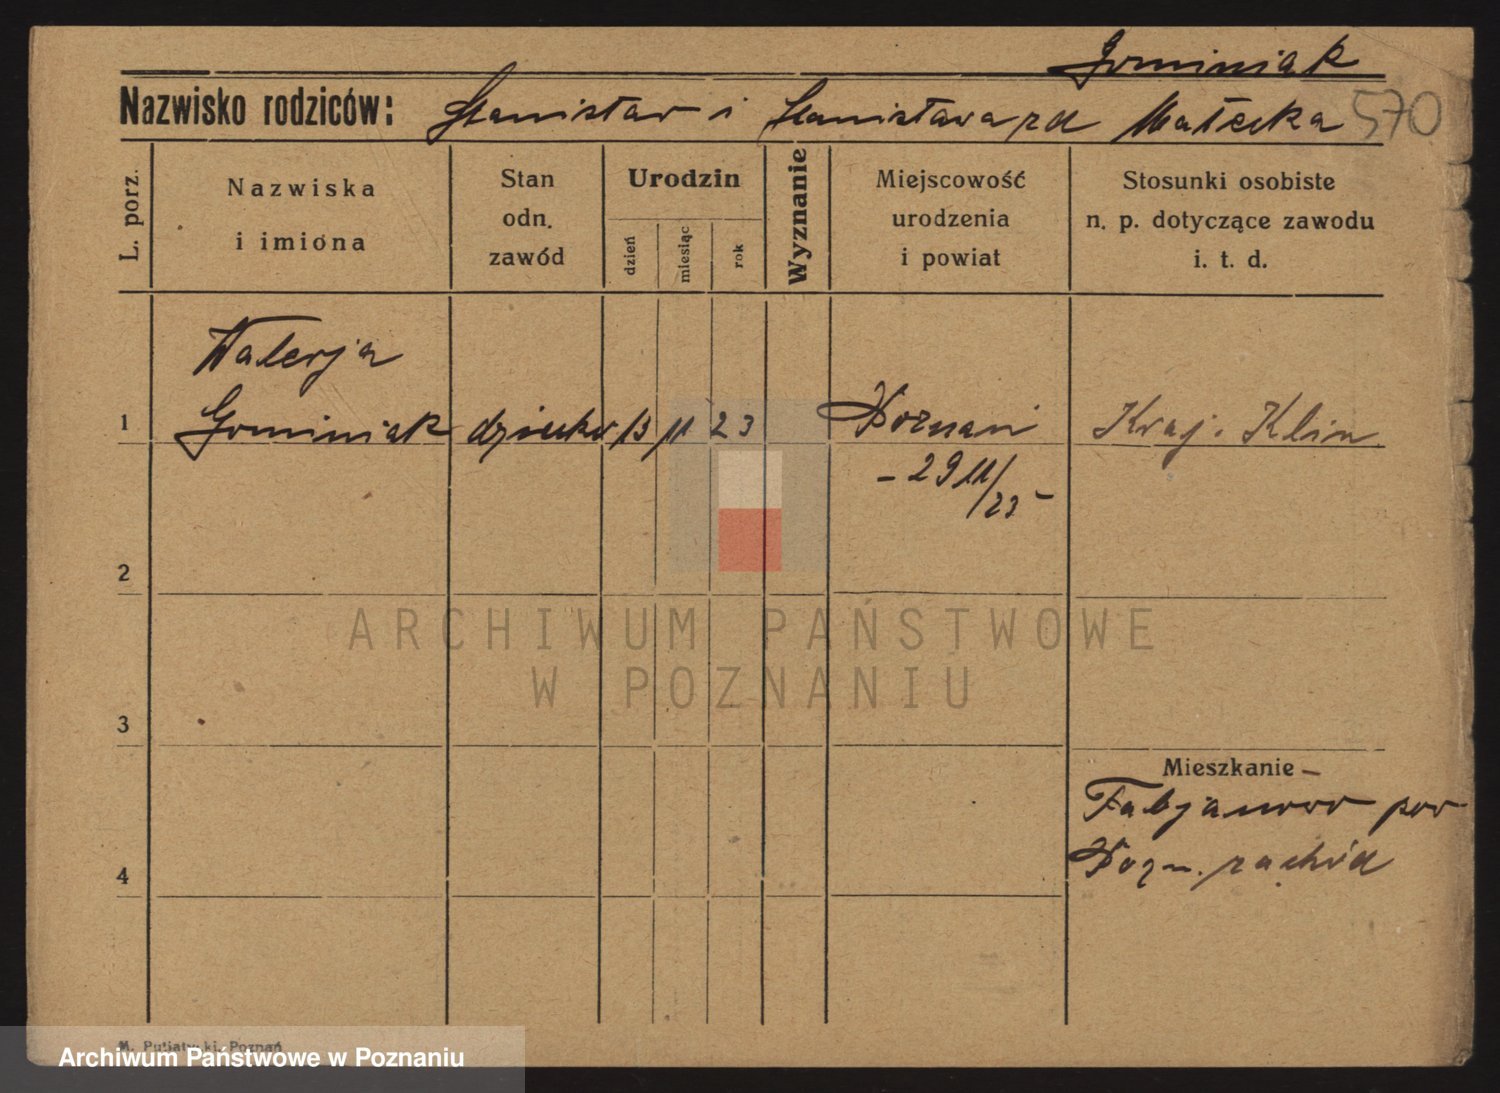 Gominiak
Nazwisko rodziców: Stanisław i Stanisława zd Małecka 570
L. porz.
Nazwiska
i imiona
Stan
odn.
zawód
Urodzin
dzień
miesiąc
rok
Wyznanie
Miejscowość
urodzenia
i powiat
Stosunki osobiste
n. p. dotyczące zawodu
i. t. d.
Walerja
1 Gominiak dziecko 13 11 23 Poznań Kraj. Klin
- 29 11/23 -
2
ARCHIWUM PAŃSTWOWE
W POZNANIU
3
Mieszkanie -
Fabjanowo pow
4 Pozn. zachód
Archiwum Państwowe w Poznaniu